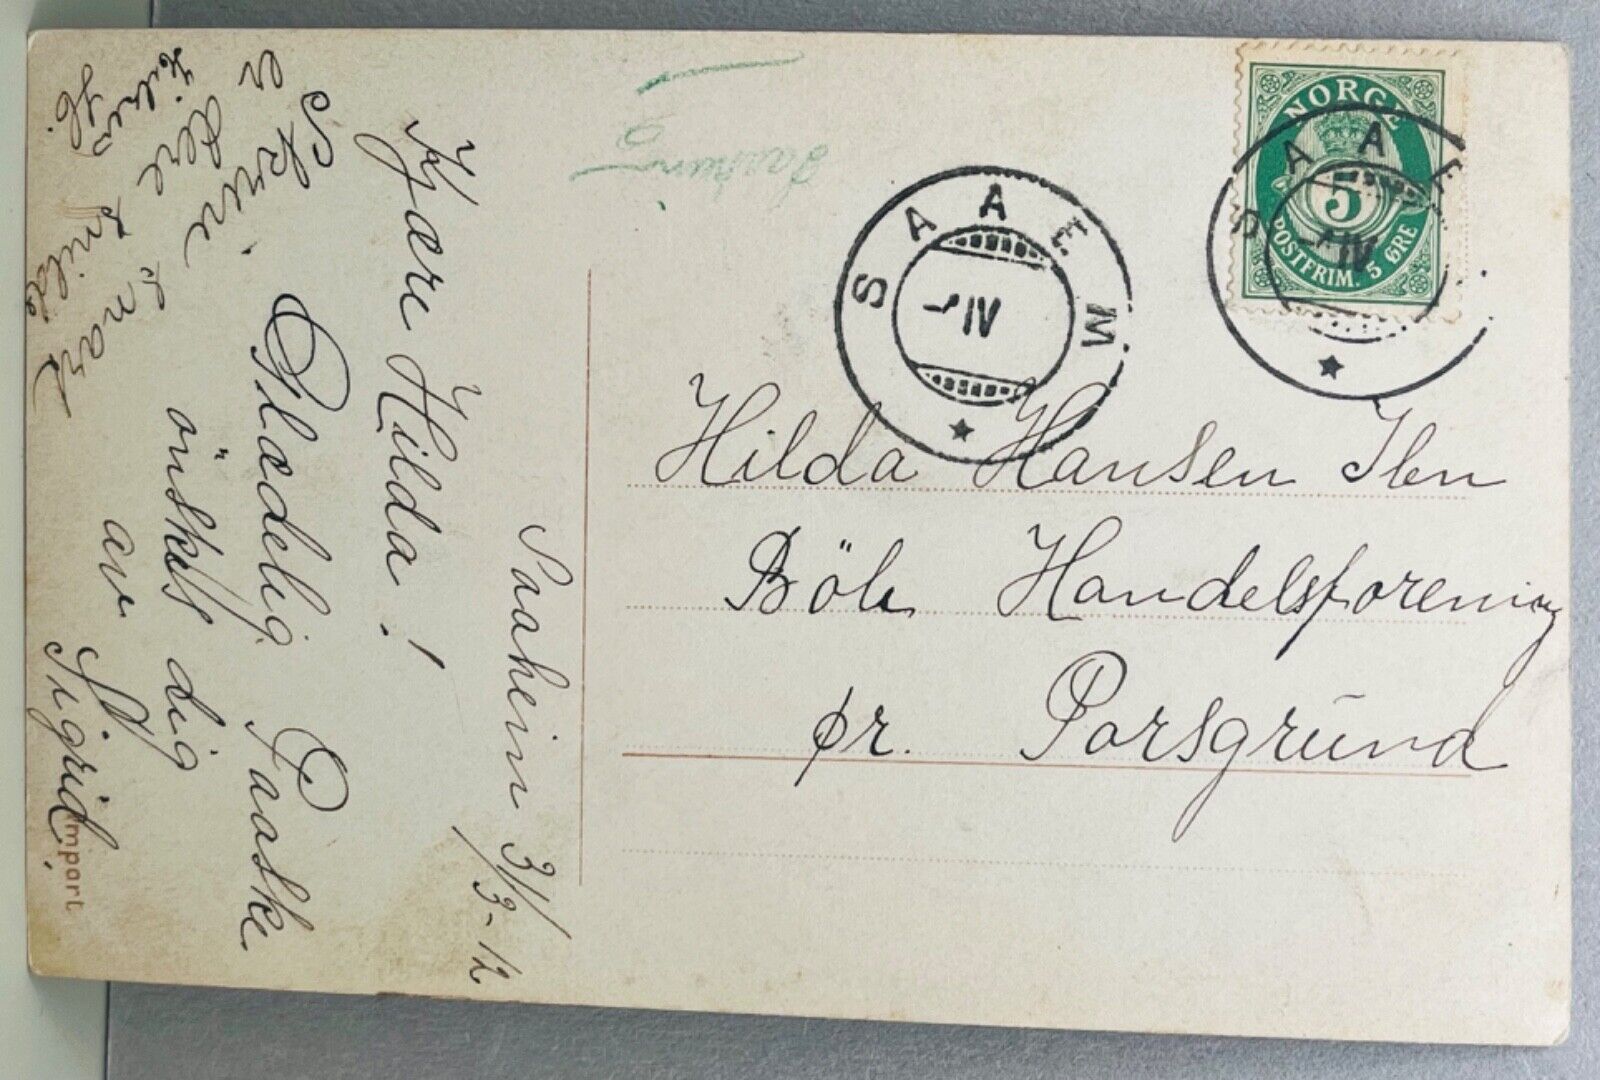 Saaheim 31/3-12
Kjære Hilda!
Glædelig Paaske
önskes dig
av
Sigrid.
Skriv.
er dere snart
snilde
Hilda Hansen
Böle Handelsforening
pr. Porsgrund
NORGE
5
POSTFRIM. 5 ØRE
SAAEM
IV
SAAE
IV
Import